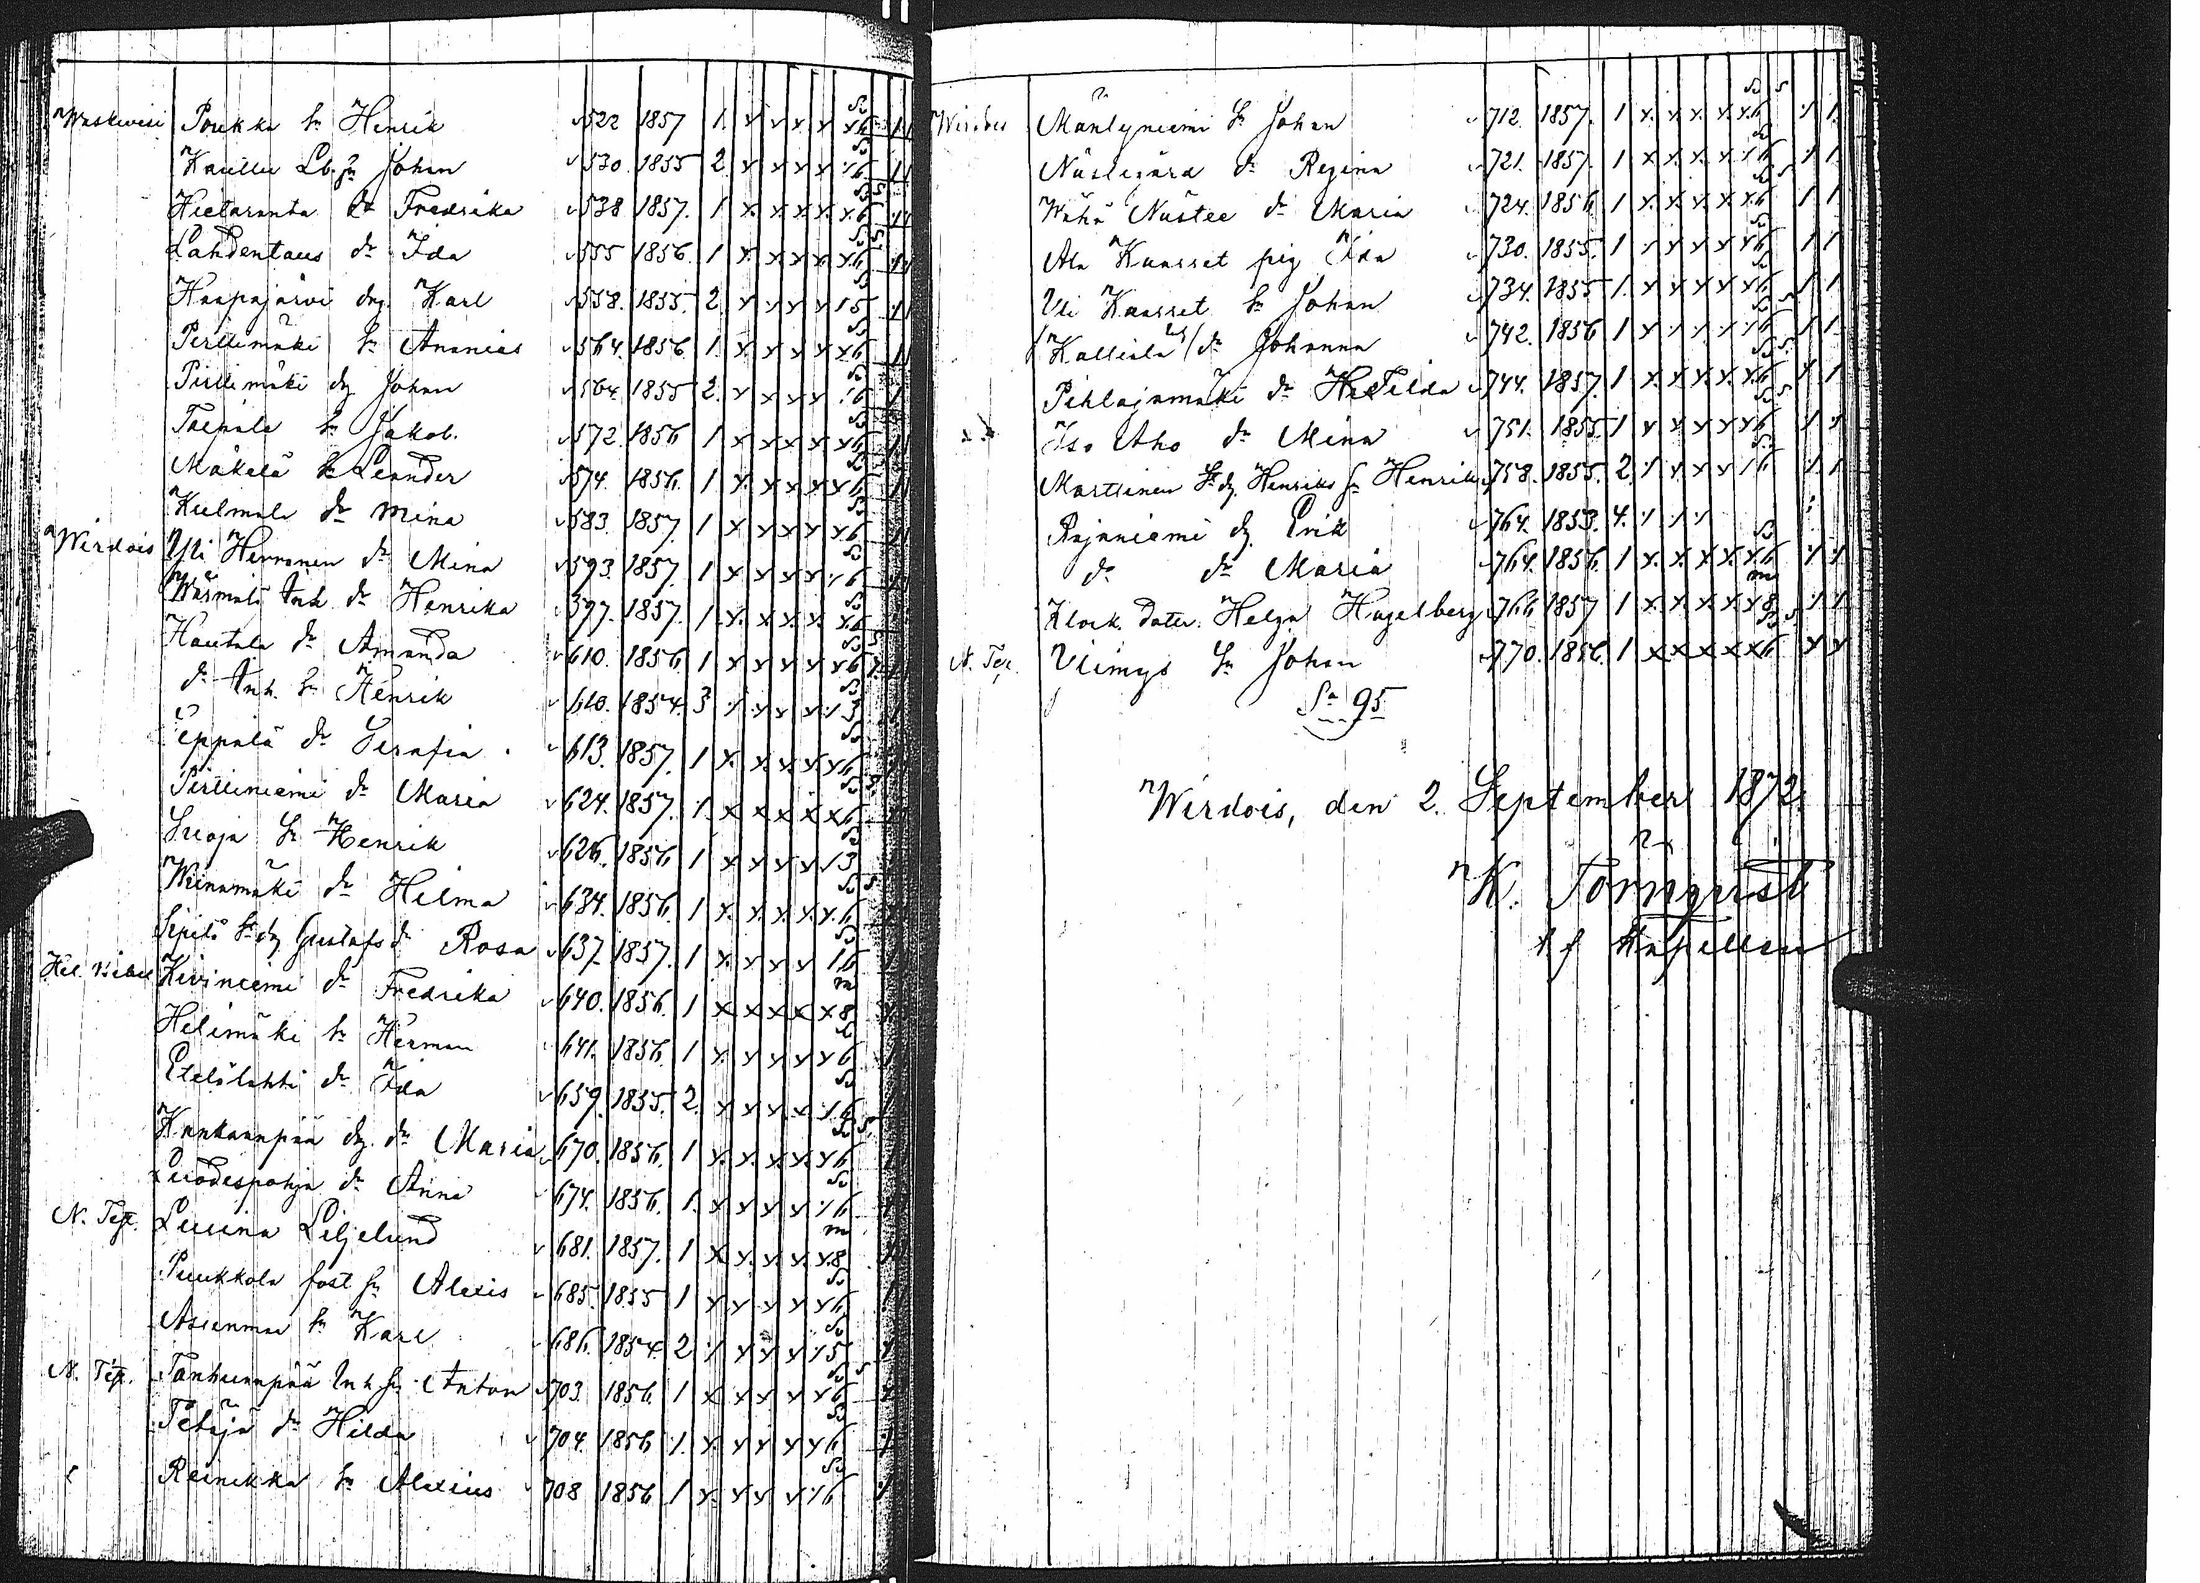 Waskivesi Poukka Sn Henrik 522 1857 1. x x x x x6
Kaille Lb. Sn Johan 530. 1855 2. x x x x 16
Hietaranta dr Fredrika 538 1857. 1 x x x x x6
Lahdentaus dr Ida 555 1856. 1 x x x x x6
Haapajärvi drg. Karl 558. 1855. 2. x x x x 15
Perttimäki Sn Ananias 564. 1856 1. x x x x x6
Pirttimäki dg Johan 564. 1855 2. x x x x 16
Toepale Sn Jakob. 572 1856 1 x x x x x6
Mäkelä Sn Leander 574. 1856. 1. x x x x x6
Kulmala dr Mina 583. 1857. 1 x x x x x6
Wirdois Yli Herranen dr Mina 593. 1857. 1 x x x x 16
Wärmälä Inh dr Henrika 597. 1857. 1 x x x x x6
Hautala dr Amanda 610. 1856. 1 x x x x x6
dr Inh. Sn Henrik 610. 1854. 3 1 x x x 13
Eppälä dr Serafia 613. 1857. 1 x. x x x x6
Pirttiniemi dr Maria 624. 1857. 1. x x x x x6
Suoja Sn Henrik 626. 1856 1 x x x x 13
Weinamäki dr Helma 634. 1856. 1 x. x x x x6
Sepilä Sn dg Gustafs dr Rosa 637. 1857. 1 x x x x 16
Kiviniemi dr Fredrika 640. 1856. 1 x x x x x8
Helimäki Sn Herman 641. 1856. 1 x x x x x6
Etelälahti dr Ida 659. 1855. 2. x x x x 16
Kankaanpää dg. dr Maria 670. 1856. 1 x. x. x. x. x6
Luodespohja dr Anna 674. 1856. 1. x x x x 16
N. Tst. Lusina Liljelund 681. 1857. 1 x x x x x8
Puukkola fost. Sn Alexis 685. 1855 1 x x x x x6
Asienmaa Sn Karl 686. 1854. 2 1 x x x 15
N. Tst. Tanhuanpää Inh Sn Anton 703. 1856. 1 x x x x x6
Tehäjä dr Hilda 704. 1856 1. x. x x x x6
Reinikka Sn Alexius 708 1856 1 x x x x 16
Wirdois Mäntyniemi Sn Johan 712. 1857. 1 x x x x x6 1 1
dr Regina 721. 1857. 1 x x x x 16 1 1
Wähä Nästee dr Maria 724. 1856 1 x x x x x6 1 1
Ala Kaasset pig Ida 730. 1855. 1 1 x x x x6 1 1
Yli Kaasset Sn Johan 734. 1855 1. x x x x x6 1 1
Kalliola dr Johanna 742. 1856 1 x 1 1 1 16 1 1
Pihlajamäki dr 744. 1857. 1 x x x x x6 1 1
Iso Aho dr Mina 751. 1855. 1 x x x x x6 1 x
Marttinen Sn dg. Henriks Sn Henrik 758. 1855. 2. 1 x x x 16 1 1
Rajaniemi dg. Erik 764. 1853. 4. 1 1 1
dr dr Maria 764. 1856. 1 x. x. x. x. x6 1 1
Klock. Dotter. Helga Hagelberg 766 1857 1 x. x. x. x. x8 1 1
N. Tst. Ulimys Sn Johan 770. 1856. 1 x x x x x6 x x
Sa 95
Wirdois, den 2. September 1872.
K. Törnqvist
Kapellan